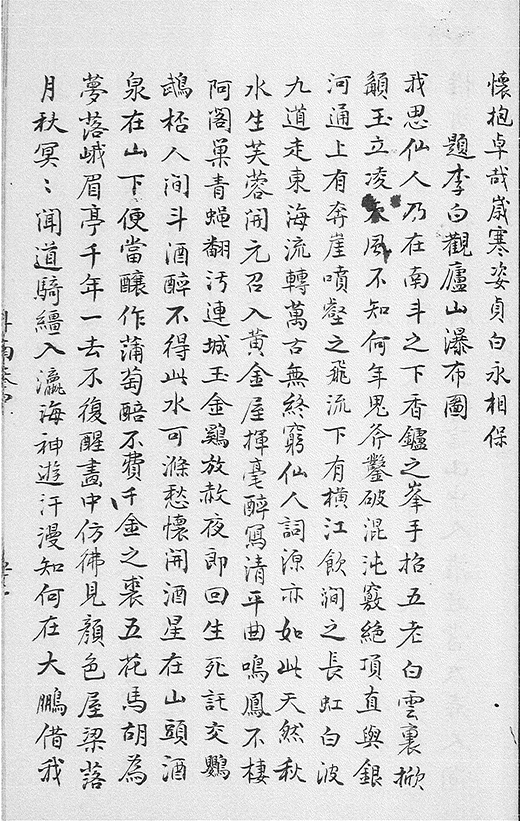 懷抱卓哉歲寒姿貞白永相保
題李白觀廬山瀑布圖
我思仙人乃在南斗之下香鑪之峯手招五老白雲裏掀
顬玉立凌天風不知何年鬼斧鑿破混沌竅絶頂直與銀
河通上有奔崖噴壑之飛流下有橫江飲澗之長虹白波
九道走東海流轉萬古無終窮仙人詞源亦如此天然秋
水生芙蓉開元召入黃金屋揮毫醉寫清平曲鳴鳳不棲
阿閣巢青蝇翻汚連城玉金鷄放赦夜郎回生死託交鸚
鵡栝人间斗酒醉不得此水可滌愁懷開酒星在山頭酒
泉在山下便當釀作蒲萄醅不費千金之裘五花馬胡為
夢落峨眉亭千年一去不復醒畫中仿彿見顏色屋梁落
月秋冥〻聞道騎鱷入瀛海神遊汗漫知何在大鵬借我